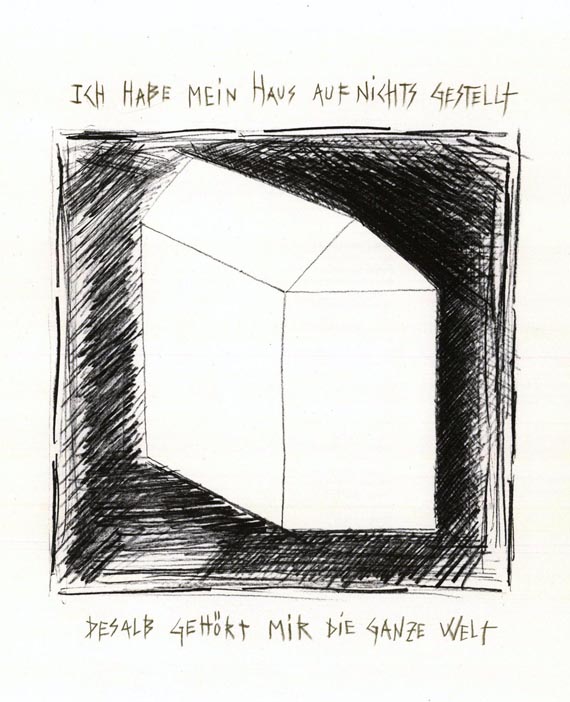 ICH HABE MEIN HAUS AUF NICHTS GESTELLT
DESALB GEHÖRT MIR DIE GANZE WELT